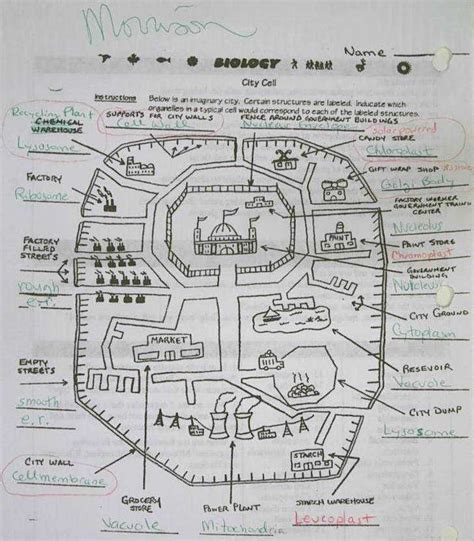 Morrison
Name
BIOLOGY
City Cell
Instructions Below is an imaginary city. Certain structures are labeled. Inducate which
organelles in a typical cell would correspond to each of the labeled structures.
Recycling Plant
CHEMICAL
WAREHOUSE
Lysosome
SUPPORTS
FOR CITY WALLS
Cell Wall
FENCE AROUND GOVERNMENT BUILDINGS
Nuclear Envelope
Solar powered
CANDY STORE
Chloroplast
GIFT WRAP SHOP
Golgi Body
FACTORY
Ribosome
FACTORY WORKER
GOVERNMENT TRAING
CENTER
Nucleolus
PAINT
PAINT STORE
Chromoplast
FACTORY
FILLED
STREETS
rough
e.r.
GOVERNMENT
BUILDING
CITY GROUND
Cytoplasm
MARKET
RESEVOIR
Vacuole
EMPTY
STREETS
smooth
e.r.
CITY DUMP
Lysosome
CITY WALL
Cell membrane
STARCH
GROCERY
STORE
Vacuole
POWER PLANT
Mitochondria
STARCH WAREHOUSE
Leucoplast